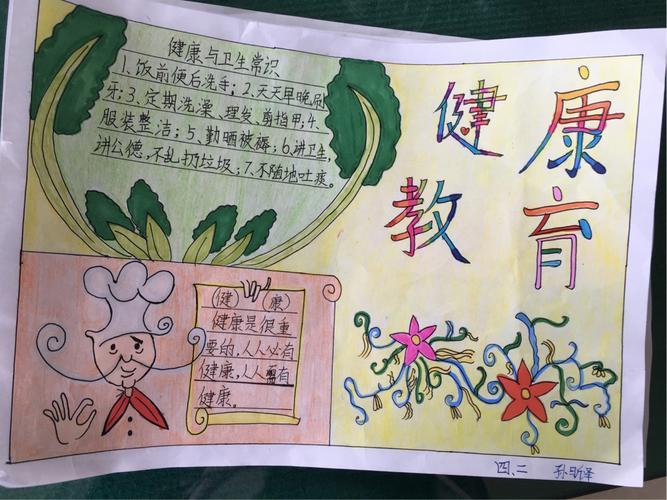 健康与卫生常识
1、饭前便后洗手；2、天天早晚刷
牙；3、定期洗澡、理发、剪指甲；4、
服装整洁；5、勤晒被褥；6、讲卫生，
讲公德，不乱扔垃圾；7、不随地吐痰。
健康
教育
（健）（康）
健康是很重
要的，人人必有
健康，人人有
健康。
四、二 孙昕泽